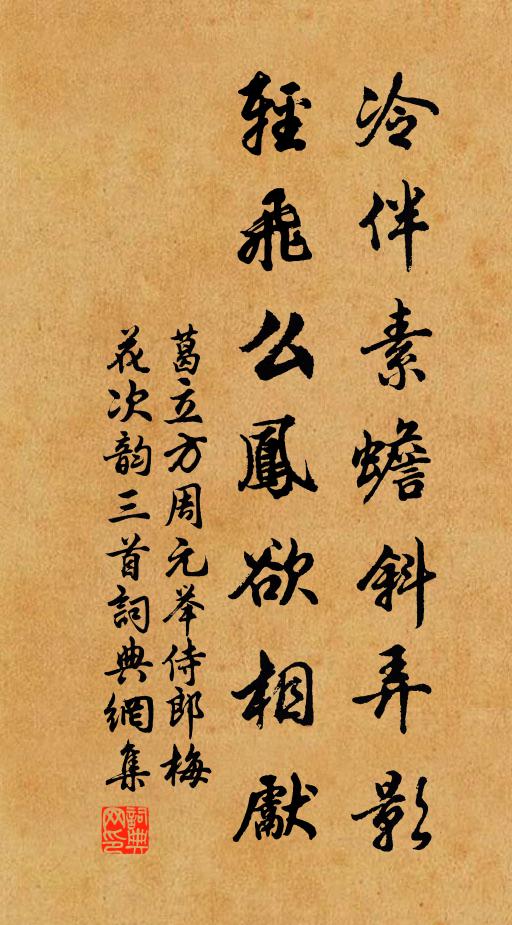 冷伴素蟾斜弄影
輕飛么鳳欲相獻
葛立方周元举侍郎梅
花次韵三首詞典網集
詞典
网印